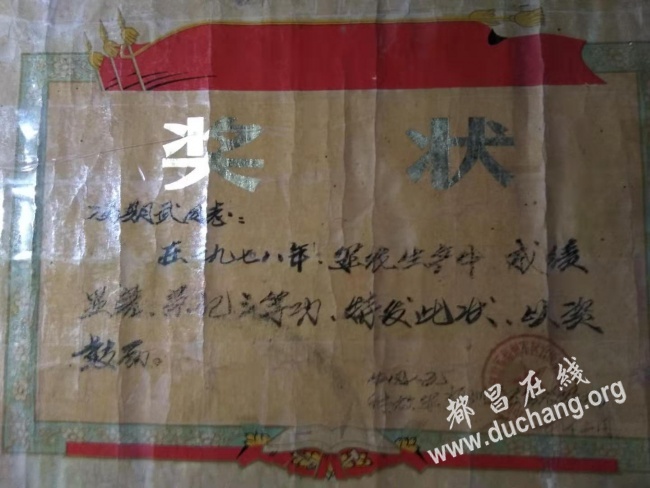 奖状
冯期武同志：
在一九七八年：军农生产中 成绩
显著、荣记三等功、特发此状、以资
鼓励。
中国人民
都昌在线
www.duchang.org